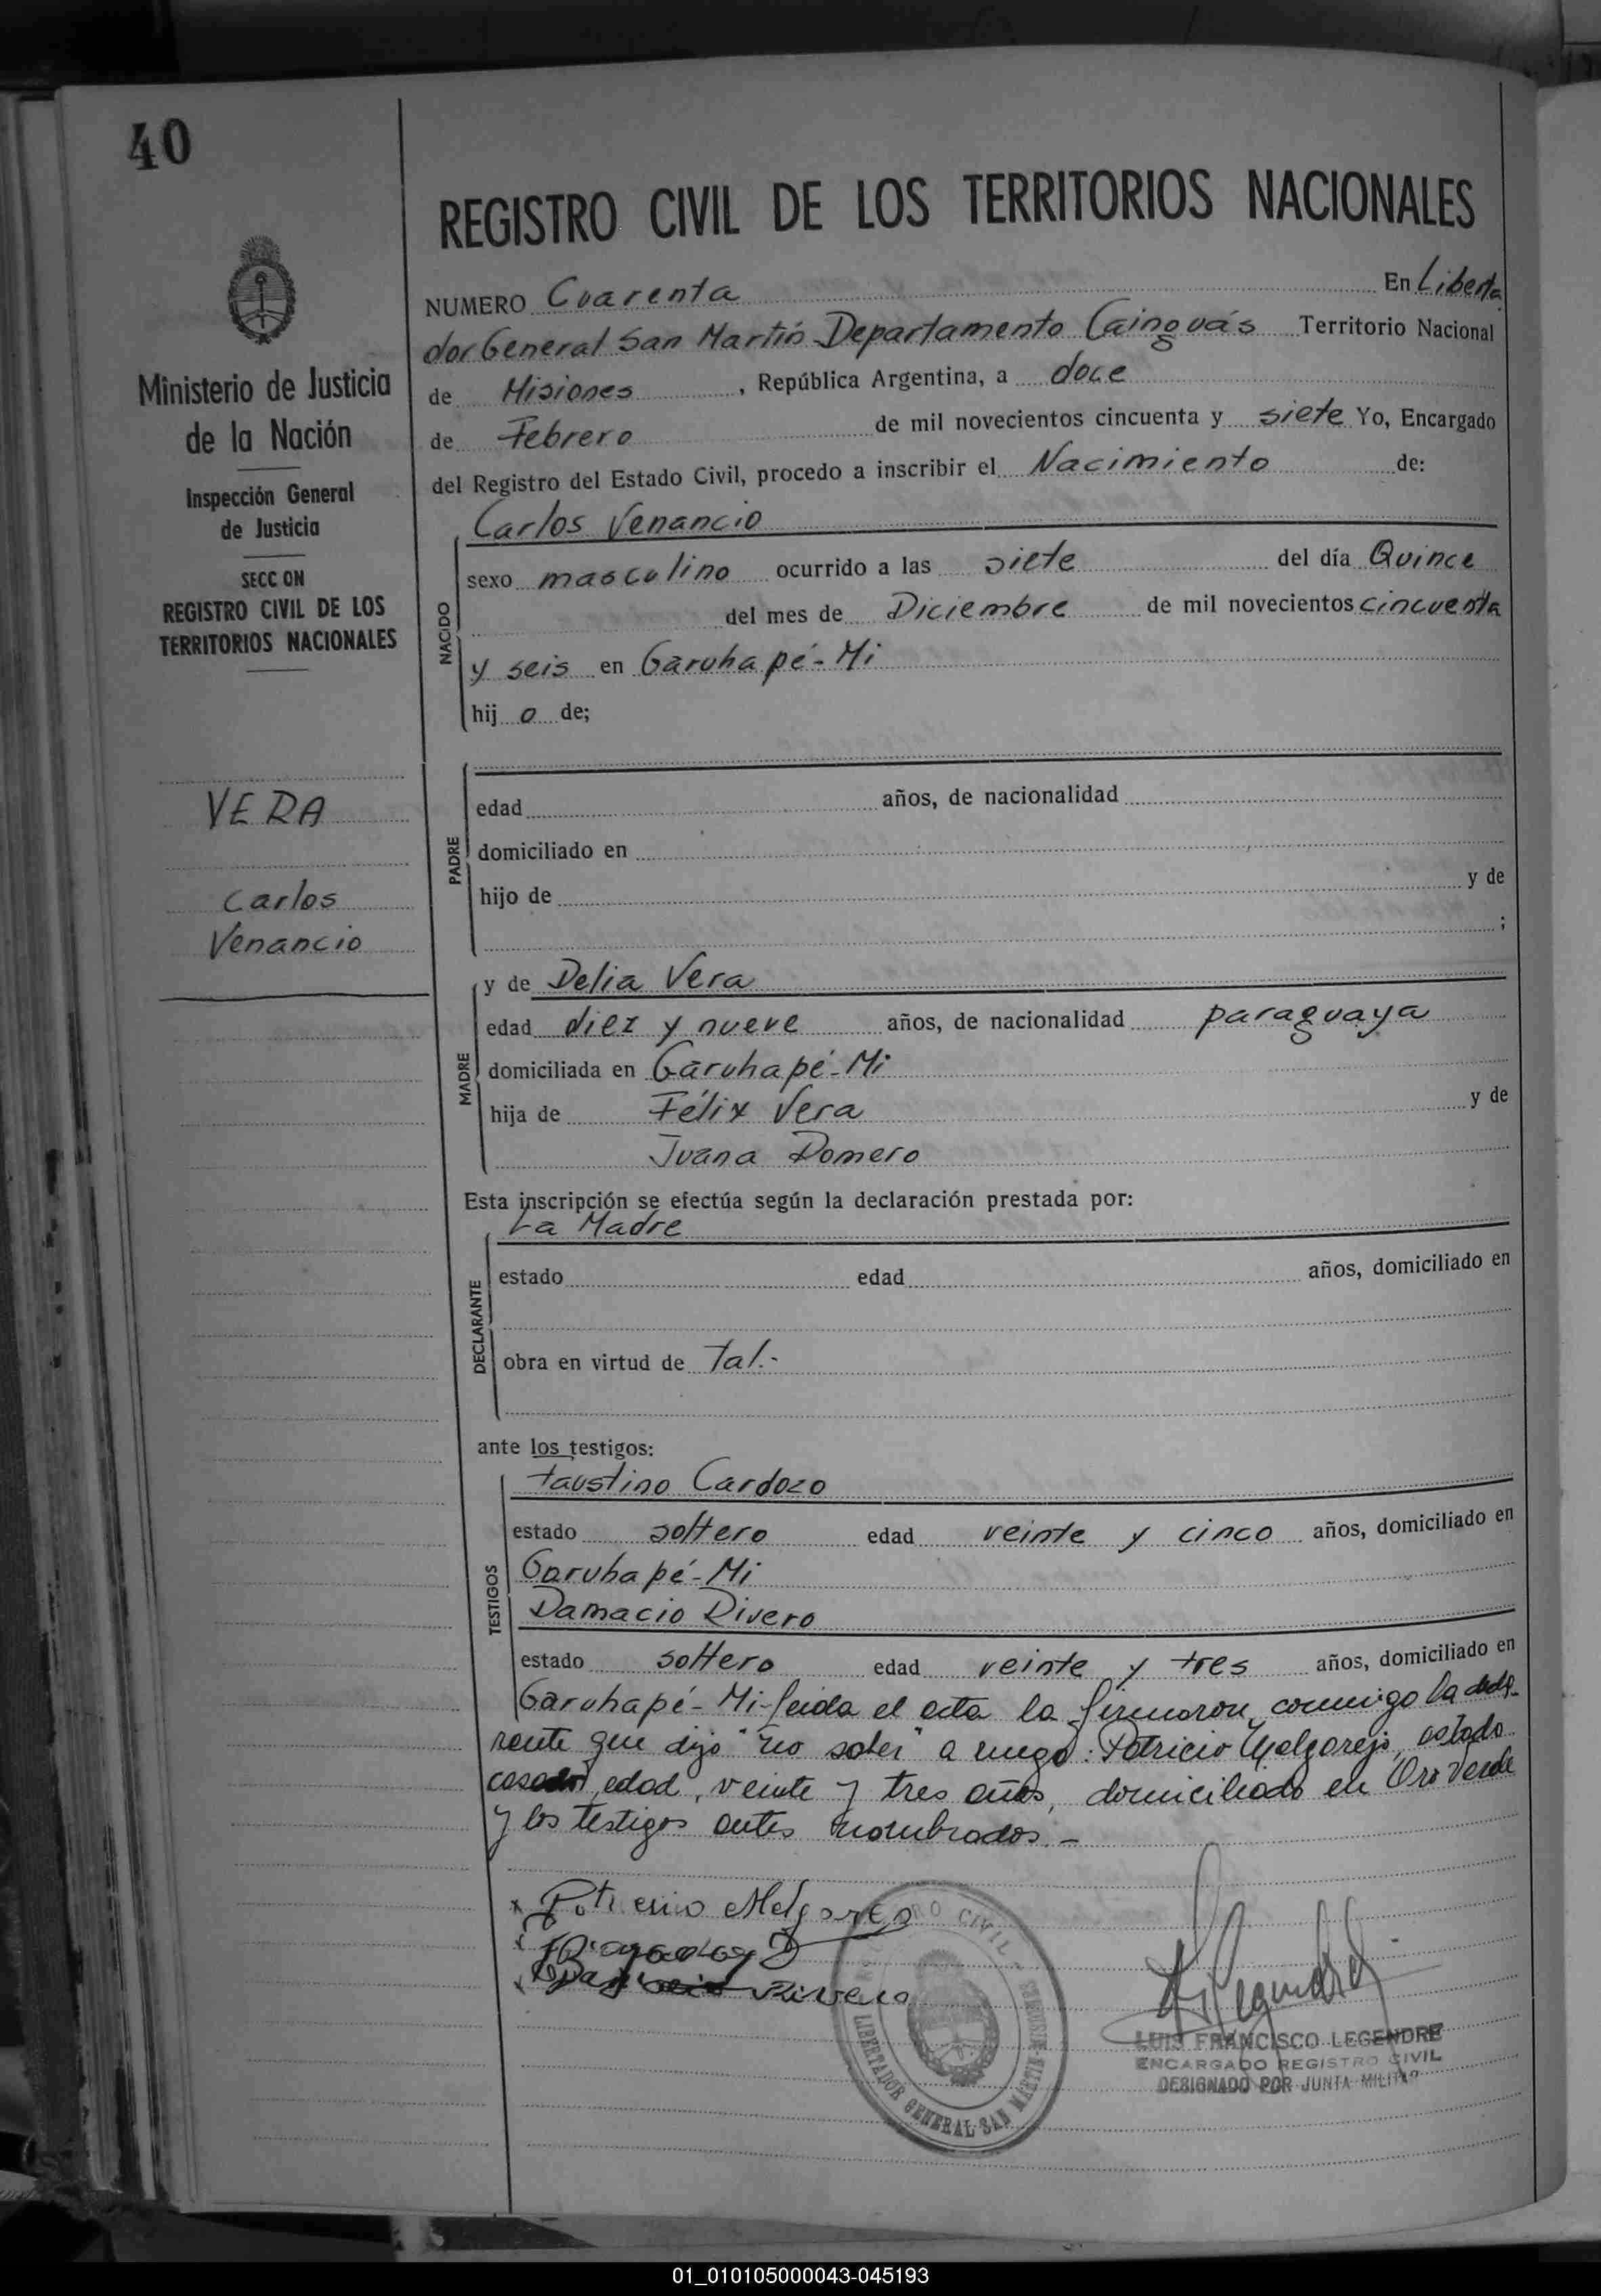 40
REGISTRO CIVIL DE LOS TERRITORIOS NACIONALES
Ministerio de Justicia
de la Nación
Inspección General
de Justicia
SECC ON
REGISTRO CIVIL DE LOS
TERRITORIOS NACIONALES
VERA
Carlos
Venancio
NUMERO Cuarenta En Liberta
dor General San Martín Departamento Cainguás Territorio Nacional
de Misiones , República Argentina, a doce
de Febrero de mil novecientos cincuenta y siete Yo, Encargado
del Registro del Estado Civil, procedo a inscribir el Nacimiento de:
Carlos Venancio
NACIDO
sexo masculino ocurrido a las siete del día Quince
del mes de Diciembre de mil novecientos cincuenta
y seis en Garuhapé-Mi
hij o de;
PADRE
edad años, de nacionalidad
domiciliado en
hijo de y de
;
MADRE
y de Delia Vera
edad diez y nueve años, de nacionalidad paraguaya
domiciliada en Garuhapé-Mi
hija de Félix Vera y de
Juana Romero
Esta inscripción se efectúa según la declaración prestada por:
La Madre
DECLARANTE
estado edad años, domiciliado en
obra en virtud de Tal.-
ante los testigos:
TESTIGOS
Faustino Cardozo
estado soltero edad veinte y cinco años, domiciliado en
Garuhapé-Mi
Damacio Rivero
estado soltero edad veinte y tres años, domiciliado en
Garuhapé-Mi-leida el acta la firmaron conmigo la decla-
rante que dijo "no saber" a ruego: Patricio Melgarejo, estado
casado, edad, veinte y tres años, domiciliado en Oro Verde
y los testigos antes nombrados.-
x Patricio Melgarejo
x
x Rivero
REGISTRO CIVIL - MISIONES
LIBERTADOR GENERAL SAN MARTIN
LUIS FRANCISCO LEGENDRE
ENCARGADO REGISTRO CIVIL
DESIGNADO POR JUNTA MILITAR
01_010105000043-045193